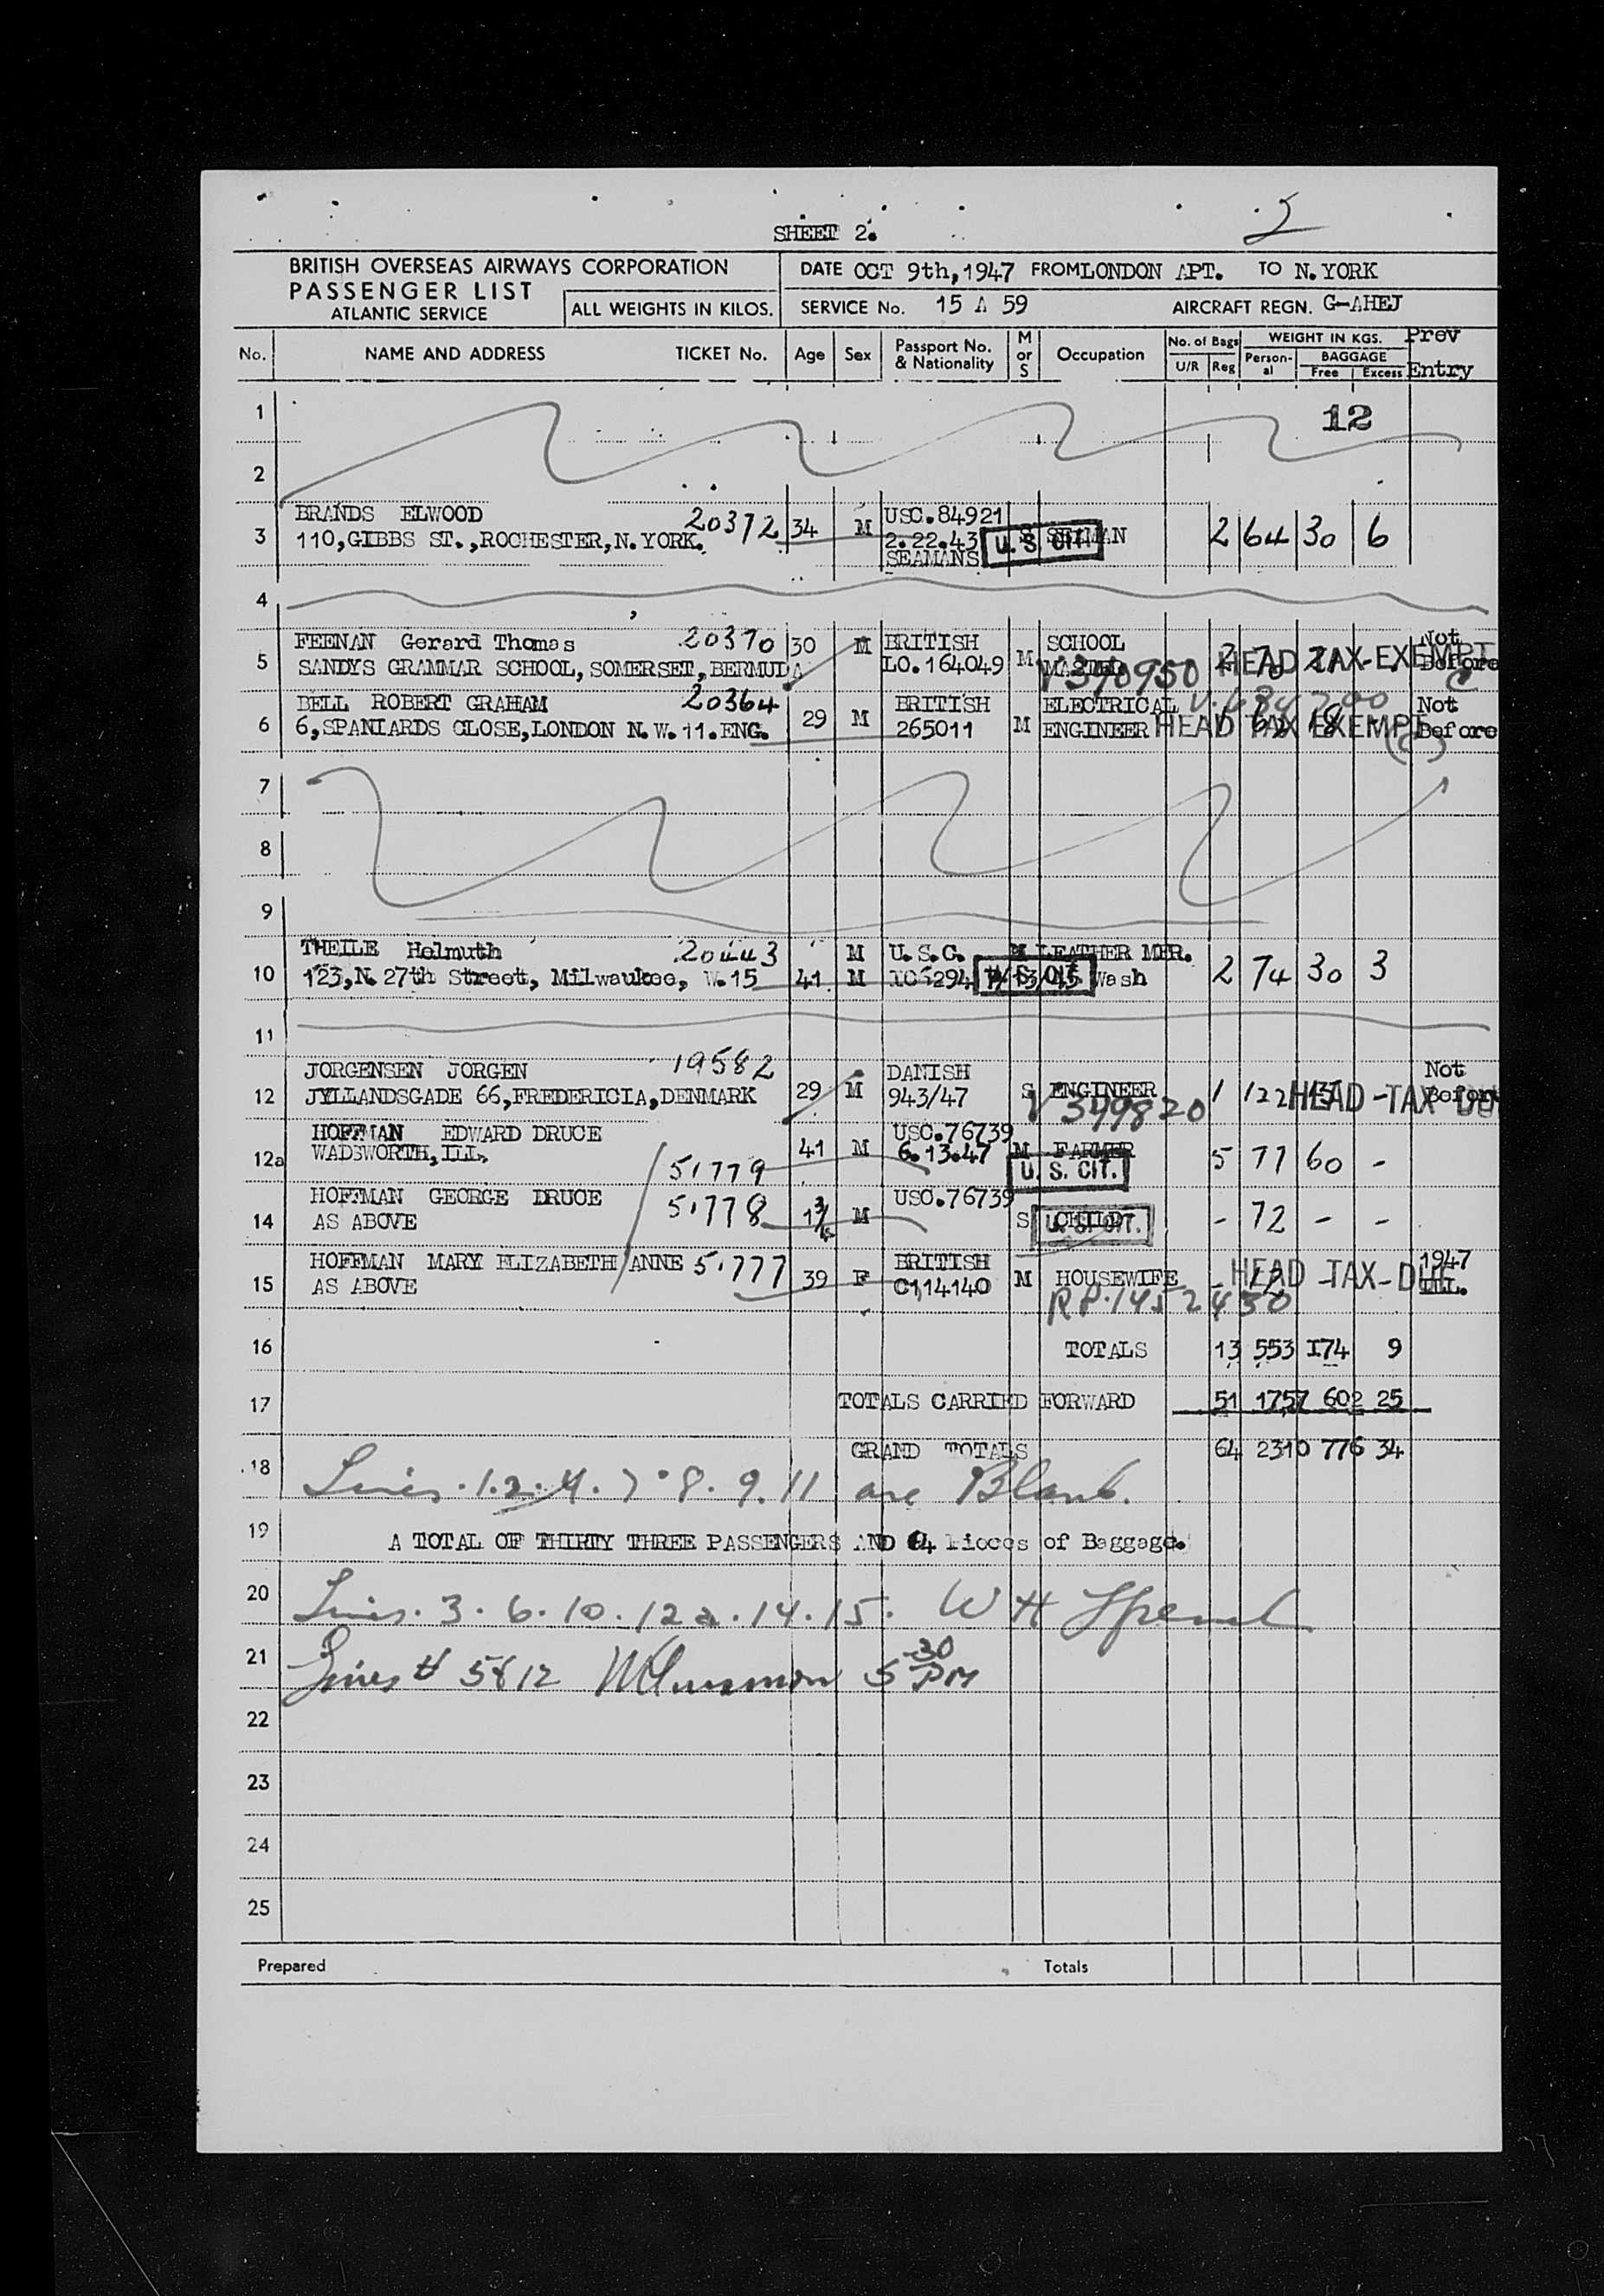 2
SHEET 2.
BRITISH OVERSEAS AIRWAYS CORPORATION
PASSENGER LIST
ATLANTIC SERVICE
ALL WEIGHTS IN KILOS.
DATE OCT 9th, 1947 FROM LONDON APT. TO N. YORK
SERVICE No. 15 A 59 AIRCRAFT REGN. G-AHEJ
No. NAME AND ADDRESS TICKET No. Age Sex Passport No. & Nationality M or S Occupation No. of Bags U/R Reg WEIGHT IN KGS. Person-al BAGGAGE Free Excess Prev Entry
1 12
2
BRANDS ELWOOD 20372 34 M USC.84921
3 110,GIBBS ST.,ROCHESTER,N.YORK. 2.22.43 S SEAMAN U. S. CIT. 2 64 30 6
SEAMANS
4
FEENAN Gerard Thomas 20370 30 M BRITISH SCHOOL Not
5 SANDYS GRAMMAR SCHOOL,SOMERSET,BERMUDA LO.164049 M MASTER V 340950 2 70 21 - HEAD TAX-EXEMPT Before
BELL ROBERT GRAHAM 20364 BRITISH ELECTRICAL Not
6 6,SPANIARDS CLOSE,LONDON N.W.11.ENG. 29 M 265011 M ENGINEER HEAD TAX EXEMPT Before
7
8
9
THEILE Helmuth 20443 M U.S.C. M LEATHER MFR.
10 123,N.27th Street, Milwaukee, W.15 41 M U. S. CIT. Wash 2 74 30 3
11
JORGENSEN JORGEN 19582 DANISH Not
12 JYLLANDSGADE 66,FREDERICIA,DENMARK 29 M 943/47 S ENGINEER 1 122 HEAD-TAX DUE Before
V 349820
HOFFMAN EDWARD DRUCE USC.76739
12a WADSWORTH,ILL. 51779 41 M 6.13.47 M FARMER 5 77 60 -
U. S. CIT.
HOFFMAN GEORGE DRUCE 51778 USC.76739
14 AS ABOVE M S CHILD U. S. CIT. - 72 - -
HOFFMAN MARY ELIZABETH ANNE 51777 BRITISH 1947
15 AS ABOVE 39 F C1,14140 M HOUSEWIFE HEAD -TAX-DUE ILL.
RP.1452450
16 TOTALS 13 553 174 9
17 TOTALS CARRIED FORWARD 51 1757 602 25
GRAND TOTALS 64 2310 776 34
18 Lines .1.2.4.7.8.9.11 are Blank.
19 A TOTAL OF THIRTY THREE PASSENGERS AND 64 Pieces of Baggage.
20 Lines. 3.6.10.12a.14.15. W H
21 Lines # 5&12 5 30 PM
22
23
24
25
Prepared Totals